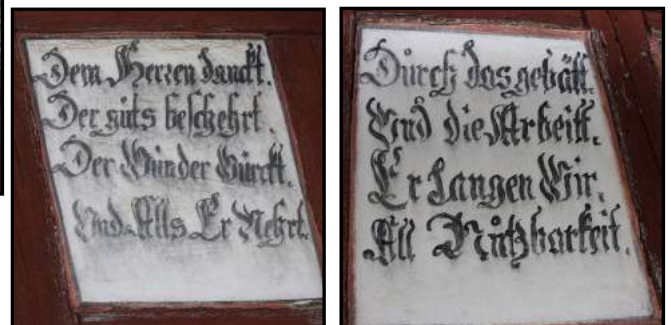 Dem Herren danckt.
Der guts beschehrt.
Der Wunder Würckt.
Und Alls Er Nehrt.
Dürch das gebätt.
Und die Arbeitt.
Er Langen Wir.
All Nützbarkeit.